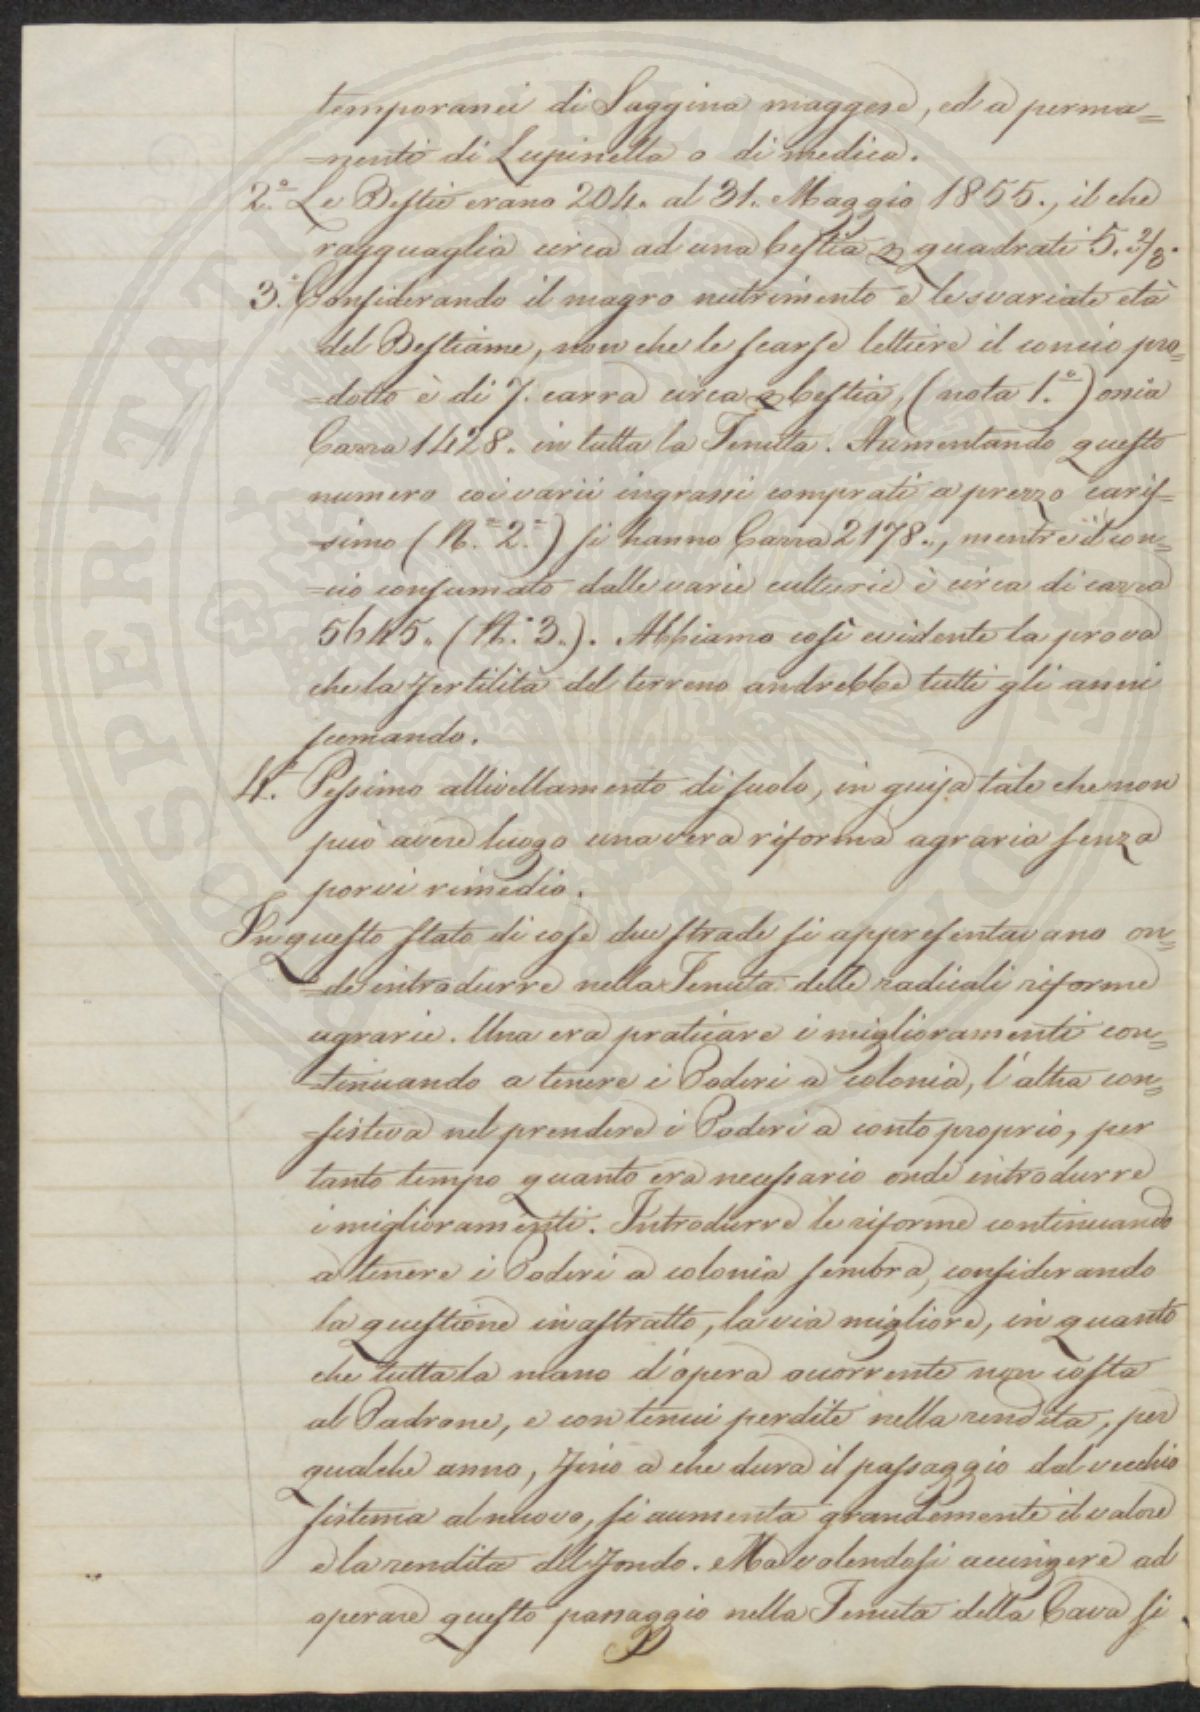 temporanei di Saggina maggese, ed a perma=
=nenti di Lupinella o di medica.
2.° Le Bestie erano 204. al 31. Maggio 1855., il che
ragguaglia circa ad una bestia p quadrati 5. 2/3.
3.° Considerando il magro nutrimento e le svariate età
del Bestiame, non che le scarse lettiere il concio pro=
=dotto è di 7. carra circa p bestia, (nota 1.°) ossia
Carra 1428. in tutta la Tenuta. Aumentando questo
numero coi varii ingrassi comprati a prezzo caris=
=simo (N.° 2.°) si hanno Carra 2178., mentre il con=
=cio consumato dalle varie culture è circa di carra
5645. (N.° 3.). Abbiamo così evidente la prova
che la fertilità del terreno andrebbe tutti gli anni
scemando.
4.° Pessimo allivellamento di suolo, in guisa tale che non
può avere luogo una vera riforma agraria senza
porvi rimedio.
In questo stato di cose due strade si appresentavano on=
=de introdurre nella Tenuta delle radicali riforme
agrarie. Una era praticare i miglioramenti con=
=tinuando a tenere i Poderi a colonia, l'altra con=
=sisteva nel prendere i Poderi a conto proprio, per
tanto tempo quanto era necessario onde introdurre
i miglioramenti. Introdurre le riforme continuando
a tenere i Poderi a colonia sembra, considerando
la questione in astratto, la via migliore, in quanto
che tutta la mano d'opera occorrente non costa
al Padrone, e con tenui perdite nella rendita, per
qualche anno, fino a che dura il passaggio dal vecchio
sistema al nuovo, si aumenta grandemente il valore
e la rendita del fondo. Ma volendosi accingere ad
operare questo passaggio nella Tenuta della Cava si
PROSPERITATI PUBLICAE